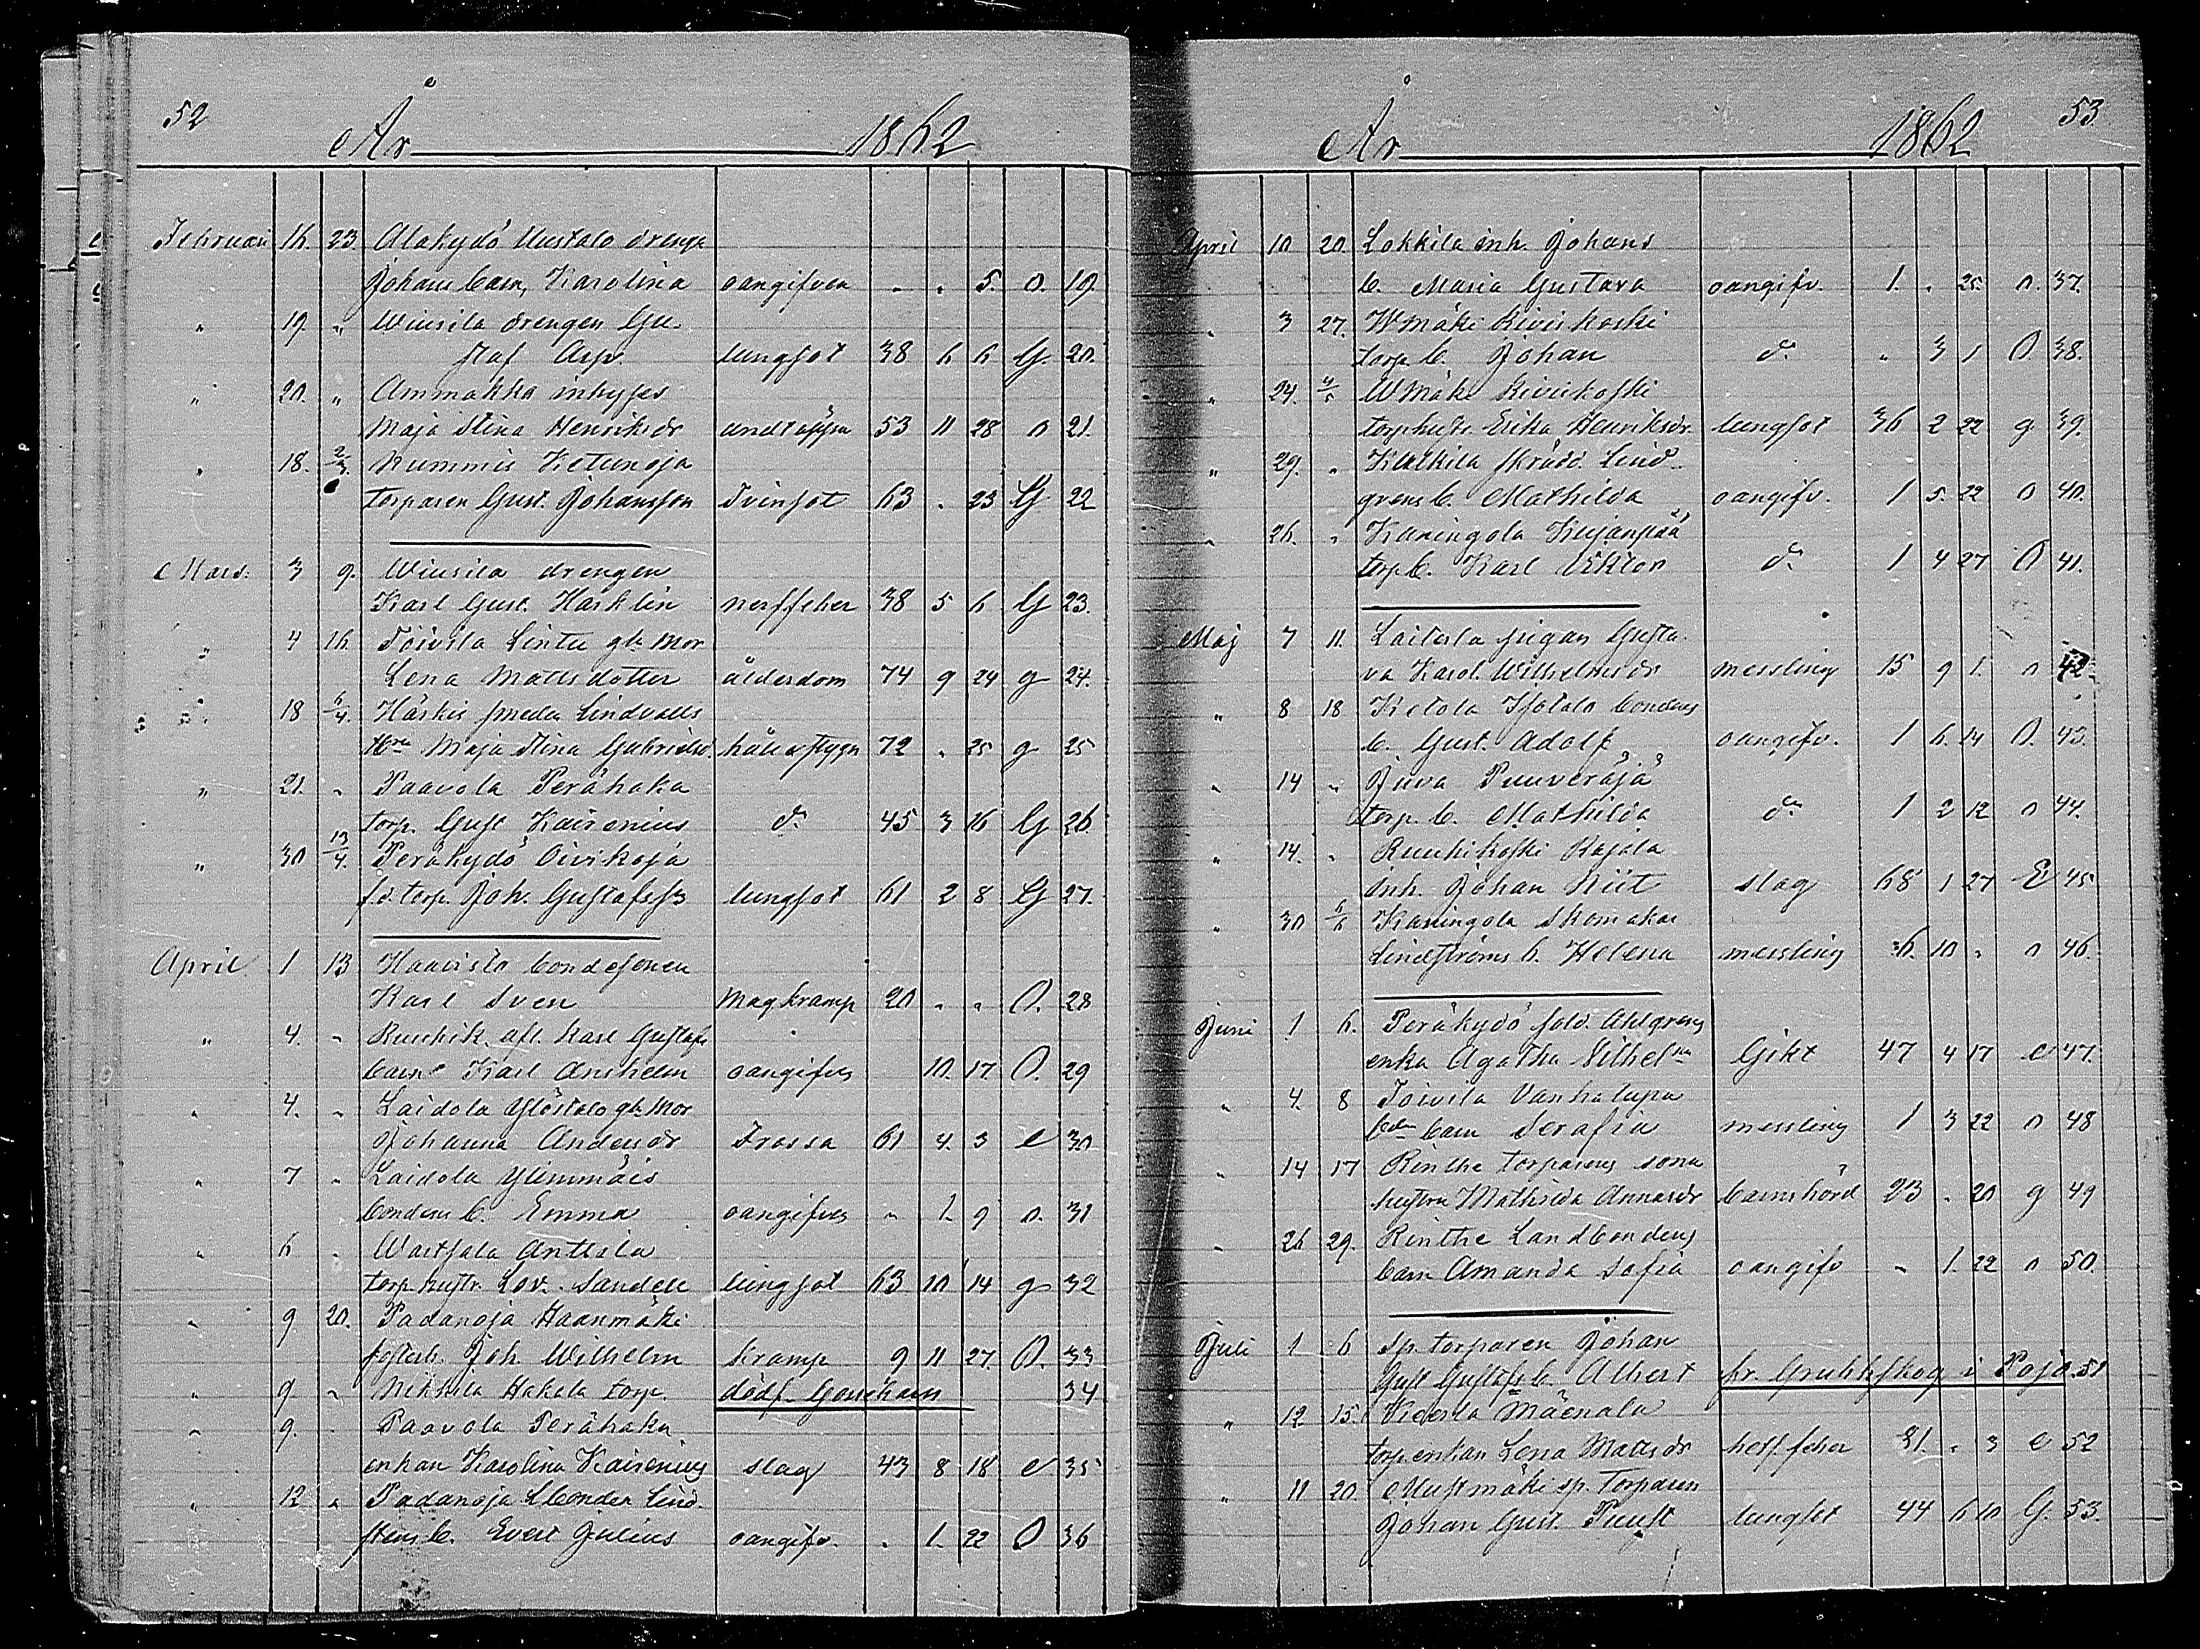 52
År 1862
Februari 16. 23. Alakydö Uustalo drengs
Johans barn, Karolina oangifven " " 5. O. 19.
" 19. " Wiurila drengen Gu-
staf Asp. lungsot 38 6 6 G. 20.
" 20. " Ammakka inhyses
Maja Stina Henriksdr andtäppa 53 11 28 o 21.
" 18. 2/3. Rummis Ketunoja
torparen Gust. Johansson Tvinsot 63 . 23 G 22
Mars. 3 9. Wiurila drengen
Karl Gust. Harklin nerffeber 38 5 6 G 23.
" 4 16. Toivila Lintu gla Mor
Lena Mattsdotter ålderdom 74 9 24 g 24.
" 18 6/4. Härkis smeden Lindvalls
Hru Maja Stina Gabrielsd. håll o stygn 72 . 25 g 25
" 21. " Paavola Perähaka
torp. Gust Kairenius do 45 3 16 G 26.
" 30 13/4. Peräkydö Oivikoja
f.d. torp. Joh. Gustafss. lungsot 61 2 8 G 27.
April 1 13 Haavisto bondesonen
Karl Sven Magkramp 20 " " O. 28
" 4. " Ruuhik. afl. Karl Gustafs
barn Karl Anshelm oangifves 10. 17. O. 29
" 4. " Laidola Ylöstalo gla Mor
Johanna Andersdr Frossa 61 4. 3 e 30
" 7 " Laidola Ylimmäis
bondens b. Emma oangifves " 1. 9 o. 31
" 6 " Wartsala Anttila
torp. hustr. Lov. Sandell lungsot 63 10 14 g 32
" 9 20. Padanoja Haanmäki
fosterb. Joh. Wilhelm kramp 9 11 27. O. 33
" 9 " Nikkila Hakala torp. dödf. Gossebarn 34
" 9. Paavola Perähaka
enkan Karolina Kairenius slag 43 8 18 e 35
" 12. " Padanoja Lbonden Lind-
stens b. Evert Julius oangifv. . 1. 22 O 36
53
År 1862
April 10 20. Lokkila inh. Johans
b. Maria Gustava oangifv. 1. " 25. o. 37.
" 3 27. Wmäki Kivikoski
torp b. Johan do " 3 1 O. 38.
" 24. 4/5 Wmäki Kivikoski
torp hustr. Erika Henriksdr. lungsot 36 2 22 g 39.
" 29. " Kulkila skrädd. Lind-
grens b. Mathilda oangifv. 1 5. 22 o 40.
" 26. " Kaningola Kujanpää
torp b. Karl Viktor do 1 4 27 O 41.
Maj 7 11. Laiterla pigan Gusta-
va Karol. Wilhelmsdr messling 15 9 1. o 42.
" 8 18 Ketola Isotalo bondens
b. Gust. Adolf oangifv. 1 6. 14 O. 43.
" 14 " Juva Puuveräjä
torp. b. Mathilda do 1 2 12 o 44.
" 14. " Ruuhikoski Rajala
inh. Johan Kiit slag 68 1 27 E 45
" 30 6/6 Kaningola skomakar
Lindströms b. Helena messling 6. 10 " o 46.
Juni 1 6. Peräkydö sold. Ahlgrens
enka Agatha Vilhelma Gikt 47 4 17 e 47.
" 4. 8 Toivila Vanhatupa
barn Serafia messling 1 3 22 o 48
" 14 17 Rinthe torparens sona
hustru Mathilda Annasdr barnsbörd 23 . 20 g 49
" 26 29. Rinthe Landbondens
barn Amanda Sofia oangifv " 1. 22 o 50.
Juli 1 6 Sp. torparen Johan
Gust Gustafs b. Albert fr. i Pojo. 51
" 12 15. Vierla Mäenala
torp enkan Lena Mattsdr hetsfeber 81. " 3 e 52
" 11 20. Mustmäki sp. torparen
Johan Gust. Puust lungsot 44 6 10 G. 53.